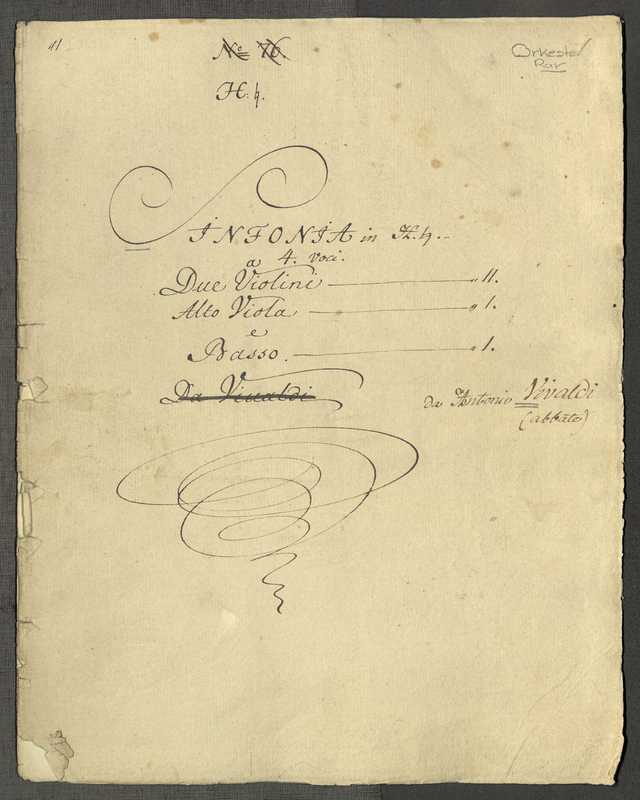 41
No 76.
Orkester
Rar
H: ♮.
SINFONIA in H. ♮.
a 4. voci.
Due Violini " 11.
Alto Viola " 1.
e
Basso. " 1.
Da Viualdi
da Antonio Vivaldi
(abbate)